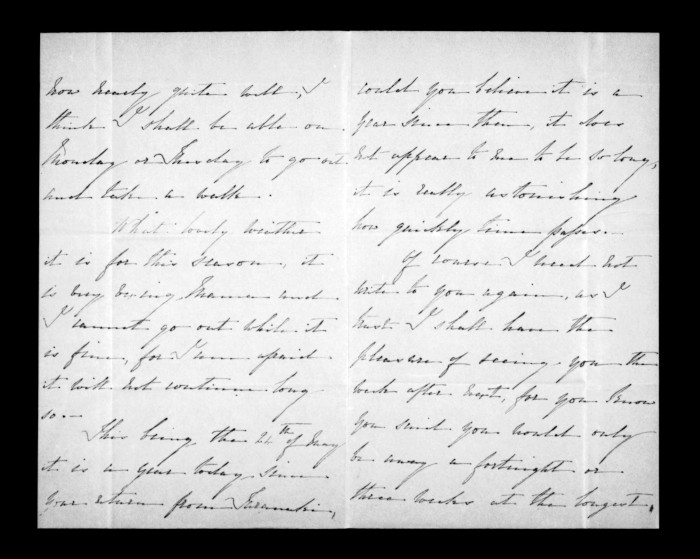 now nearly quite well, I
think I shall be able on
Monday or Tuesday to go out
and take a walk.
What lovely weather
it is for this season, it
is very trying Mama and
I cannot go out while it
is fine, for I am afraid
it will not continue long
so.—
This being the 24th of May
it is a year today since
your return from Taranaki,
could you believe it is a
year since then, it does
not appear to me to be so long,
it is really astonishing
how quickly time passes.—
Of course I need not
write to you again, as I
trust I shall have the
pleasure of seeing you the
week after next, for you know
you said you would only
be away a fortnight or
three weeks at the longest.